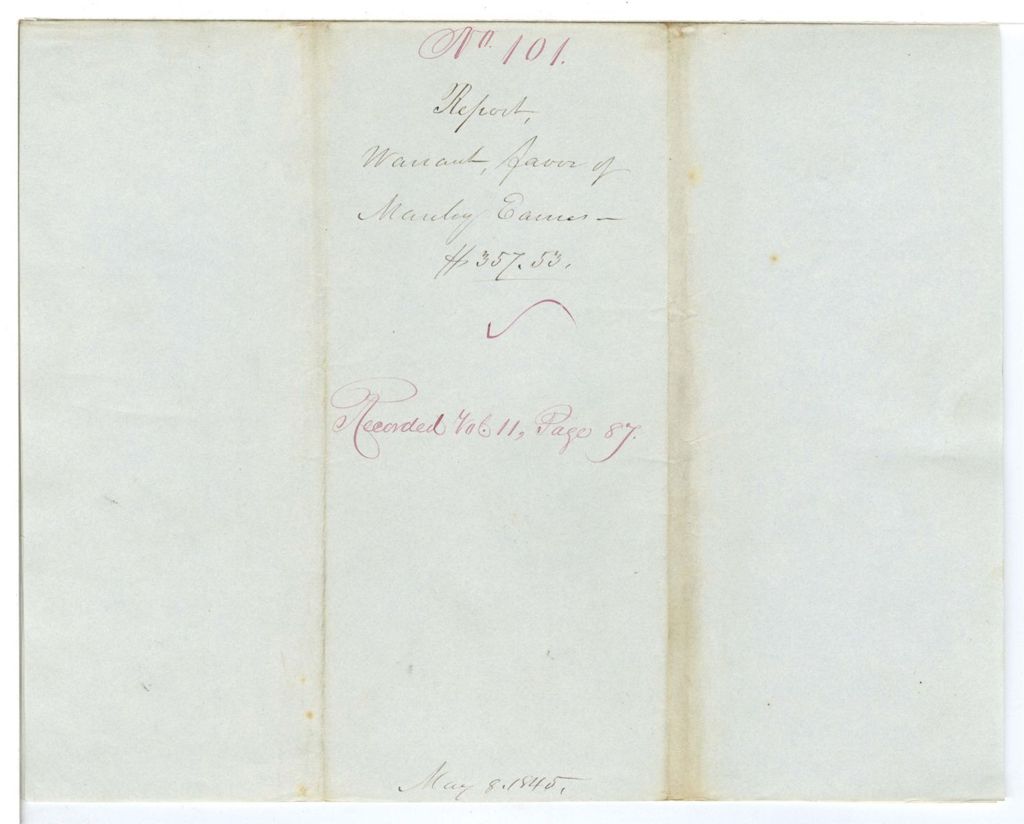 No. 101.
Report,
Warrant, favor of
Manley Eames—
$357.53.
Recorded Vol. 11, Page 87.
May 8. 1845.